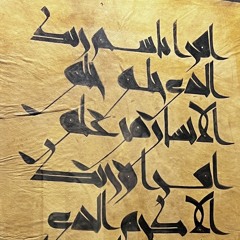 اقرا باسم ربك
الذي خلق خلق
الانسان من علق
اقرا وربك
الاكرم الذي